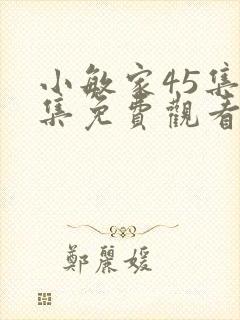 小敏家45集
集免費觀看
鄭麗媛